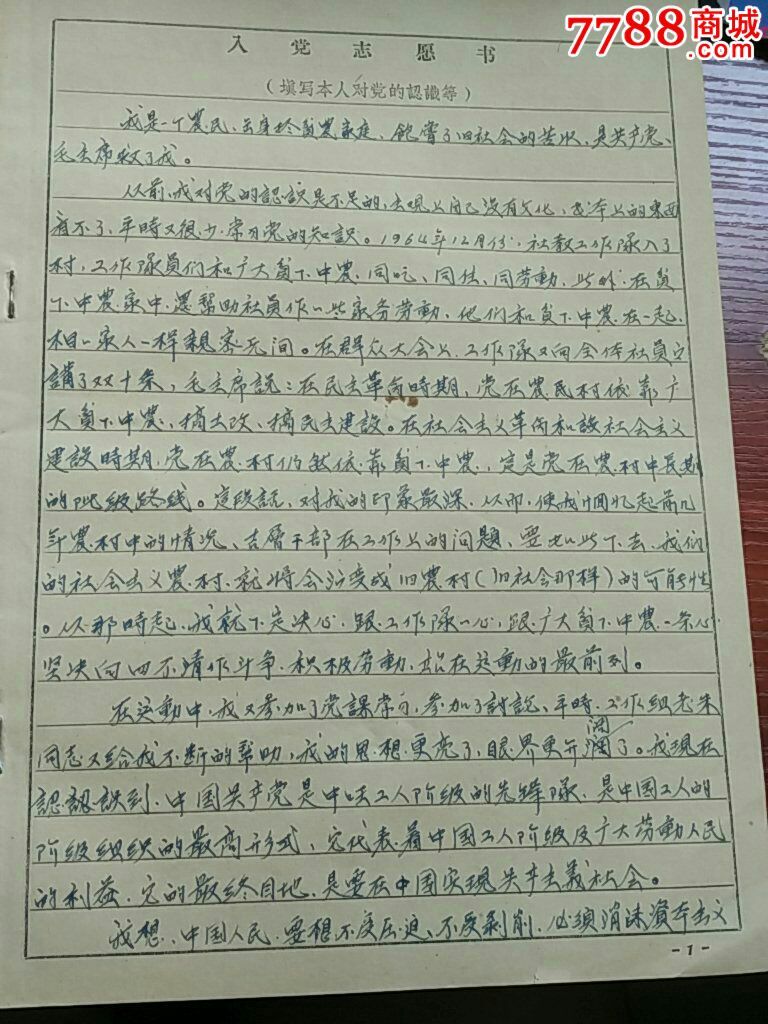 7788商城
.com
入党志愿书
（填写本人对党的認識等）
我是一个農民，出身於貧農家庭，飽嘗了旧社会的苦水，是共产党、
毛主席救了我。
从前，我对党的認識是不足的，主观上自己没有文化，書本上的東西
看不了，平時又很少学习党的知识。1964年12月份，社教工作隊入了
村，工作隊員们和广大貧下中農，同吃、同住、同劳動，此外，在貧
下中農家中，還幫助社員作一些家务劳動，他们和貧下中農在一起，
相一家人一样親密无间。在群众大会上，工作隊又向全体社員宣
講了双十条，毛主席説：在民主革命時期，党在農民村依靠广
大貧下中農，搞土改、搞民主建設。在社会主义革命和設社会主义
建設時期，党在農村仍然依靠貧下中農，這是党在農村中長期
的阶级路线。這段話，对我的印象最深，从而，使我回忆起前几
年農村中的情况、吉層干部在工作上的问題，要如此下去，我们
的社会主义農村，就將会演变成旧農村（旧社会那样）的可能性
。从那時起，我就下定决心，跟工作隊一心，跟广大貧下中農一条心
坚决向四不清作斗争，积极劳動，站在运動的最前列。
在运動中，我又参加了党課学习，参加了討說，平時，工作组老朱
同志又给我不断的幫助，我的思想更亮了，眼界更开阔了。我現在
認認識到，中国共产党是中国工人阶级的先鋒隊，是中国工人的
阶级组织的最高形式，它代表着中国工人阶级及广大劳動人民
的利益，它的最终目地，是要在中国实現共产主義社会。
我想，中国人民，要想不受压迫、不受剥削，必须消沫資本主义
-1-